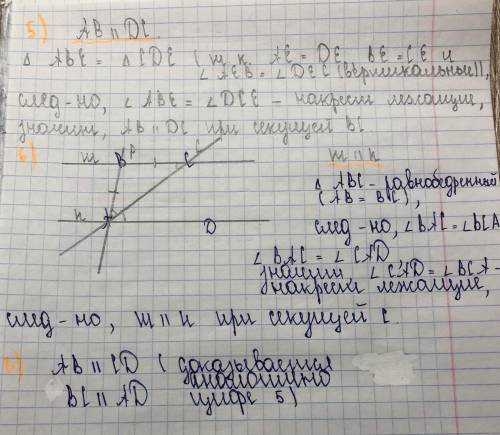 5) AB || DC
Δ ABE = Δ CDE ( т.к. AE = DE, BE = CE и
∠ AEB = ∠ DEC (вертикальные)),
след-но, ∠ ABE = ∠ DCE - накрест лежащие,
значит, AB || DC при секущей BC
6)
m B P C c
m || n
Δ ABC - равнобедренный
(AB = BC),
n A D
след-но, ∠BAC = ∠BCA
∠ BAC = ∠ CAD
значит, ∠ CAD = ∠BCA -
накрест лежащие,
след-но, m || n при секущей c.
8) AB || CD ( доказывается
аналогично
BC || AD цифре 5)